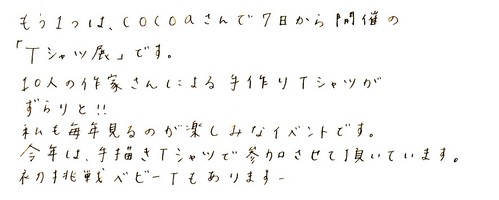 もう1つは、cocoaさんで7日から開催の
「Tシャツ展」です。
10人の作家さんによる手作りTシャツが
ずらりと!!
私も毎年見るのが楽しみなイベントです。
今年は、手描きTシャツで参加させて頂いています。
初挑戦ベビーTもあります-